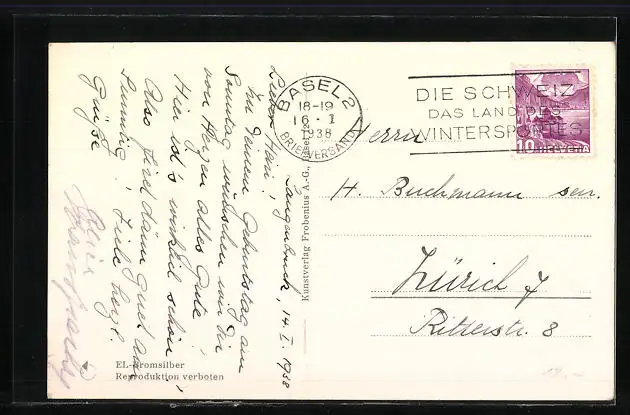 Langenbruck, 14. I. 1938
Lieber Hari!
Zu Deinem Geburtstag am
Sonntag wünschen wir Dir
von Herzen alles Gute!
Hier ist's wirklich schön,
Also
Sunntig! Viele herzl.
Grüsse
EL-Bromsilber
Reproduktion verboten
Kunstverlag Frobenius A.-G., Basel
BASEL 2
18-19
16. I
1938
BRIEFVERSAND
DIE SCHWEIZ
DAS LAND DES
WINTERSPORTES
10 HELVETIA
Herrn
H. Buchmann sen.
Zürich 7
Ritterstr. 8